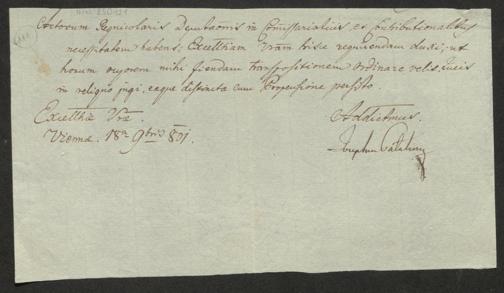 Coetorum Regnicolaris Deputationis in Commissarialibus, et Subdivisionalibus
necessitatem habens, Excelltiam Vram hisce requirendam duxi, ut
horum quorum mihi fiendam transpositionem ordinare velit, Queis
in reliquo jugi, eaque distincta cum Propensione persisto.
Excelltiae Vrae
Viennae 18a 9bris 801.
Addictmus.
Josephus Palatinus